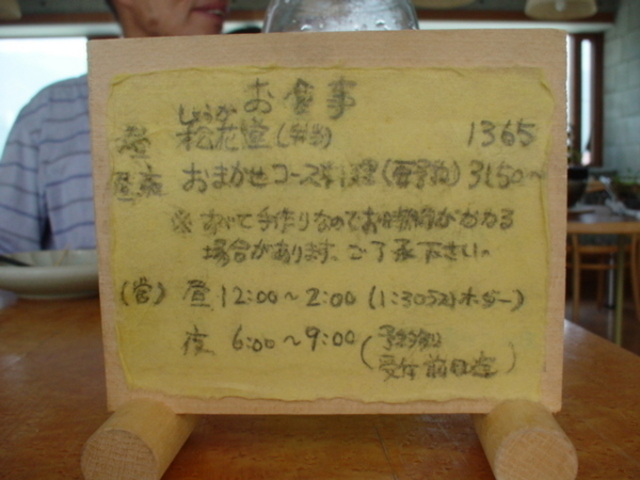 お食事
しょうか
昼 松花堂(弁当) 1365
昼夜 おまかせコース (要予約) 3150〜
※ すべて手作りなのでお時間がかかる
場合があります。ご了承下さい。
(営) 昼 12:00〜2:00 (1:30ラストオーダー)
夜 6:00〜9:00 (予約制
受付 前日迄)